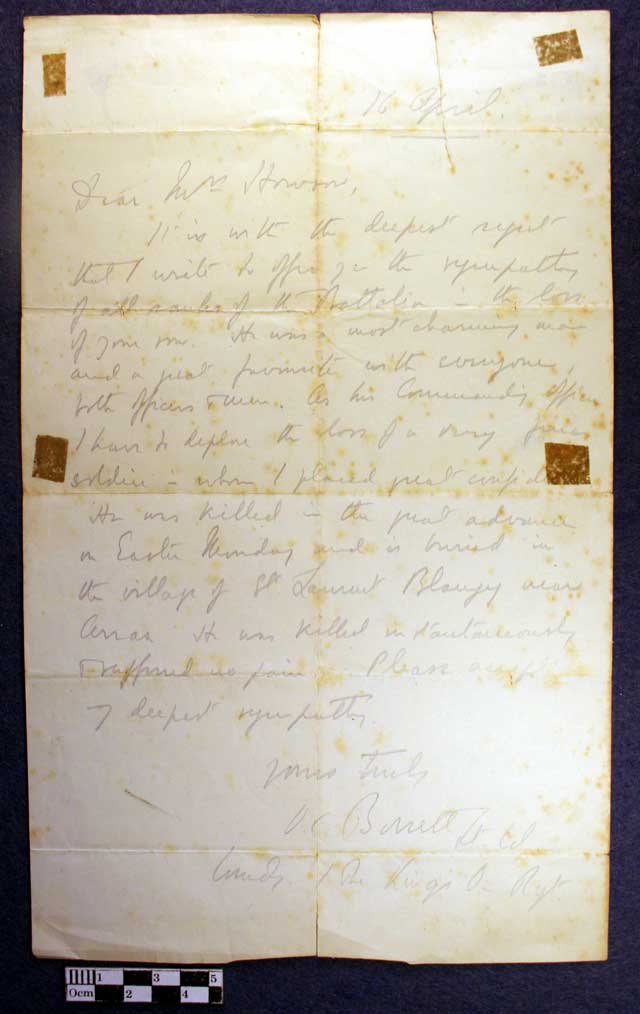 16 April.
Dear Mrs Howson,
It is with the deepest regret
that I write to offer you the sympathy
of all ranks of the Battalion in the loss
of your son. He was a most charming man
and a great favourite with everyone,
both officers & men. As his Commanding Officer
I have to deplore the loss of a very fine
soldier in whom I placed great confidence
He was killed in the great advance
on Easter Monday and is buried in
the village of St Laurent Blangy near
Arras He was killed instantaneously
& suffered no pain. Please accept
my deepest sympathy.
Yours Truly
O.C. Borrett Lt Col
Comdg. 1 The Kings Own Regt.
0cm 1 2 3 4 5